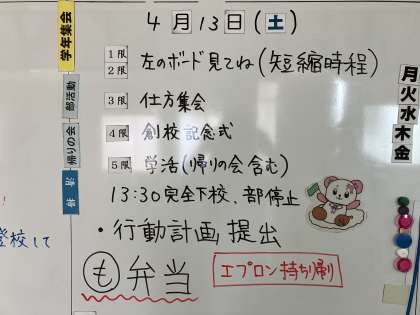 4月13日(土)
学年集会
1限
2限
左のボード見てね(短縮時程)
部活動
3限 仕方集会
帰りの会
4限 創校記念式
5限 学活(帰りの会含む)
13:30完全下校、部停止
・行動計画提出
登校して
も 弁当
エプロン持ち帰り
月
火
水
木
金